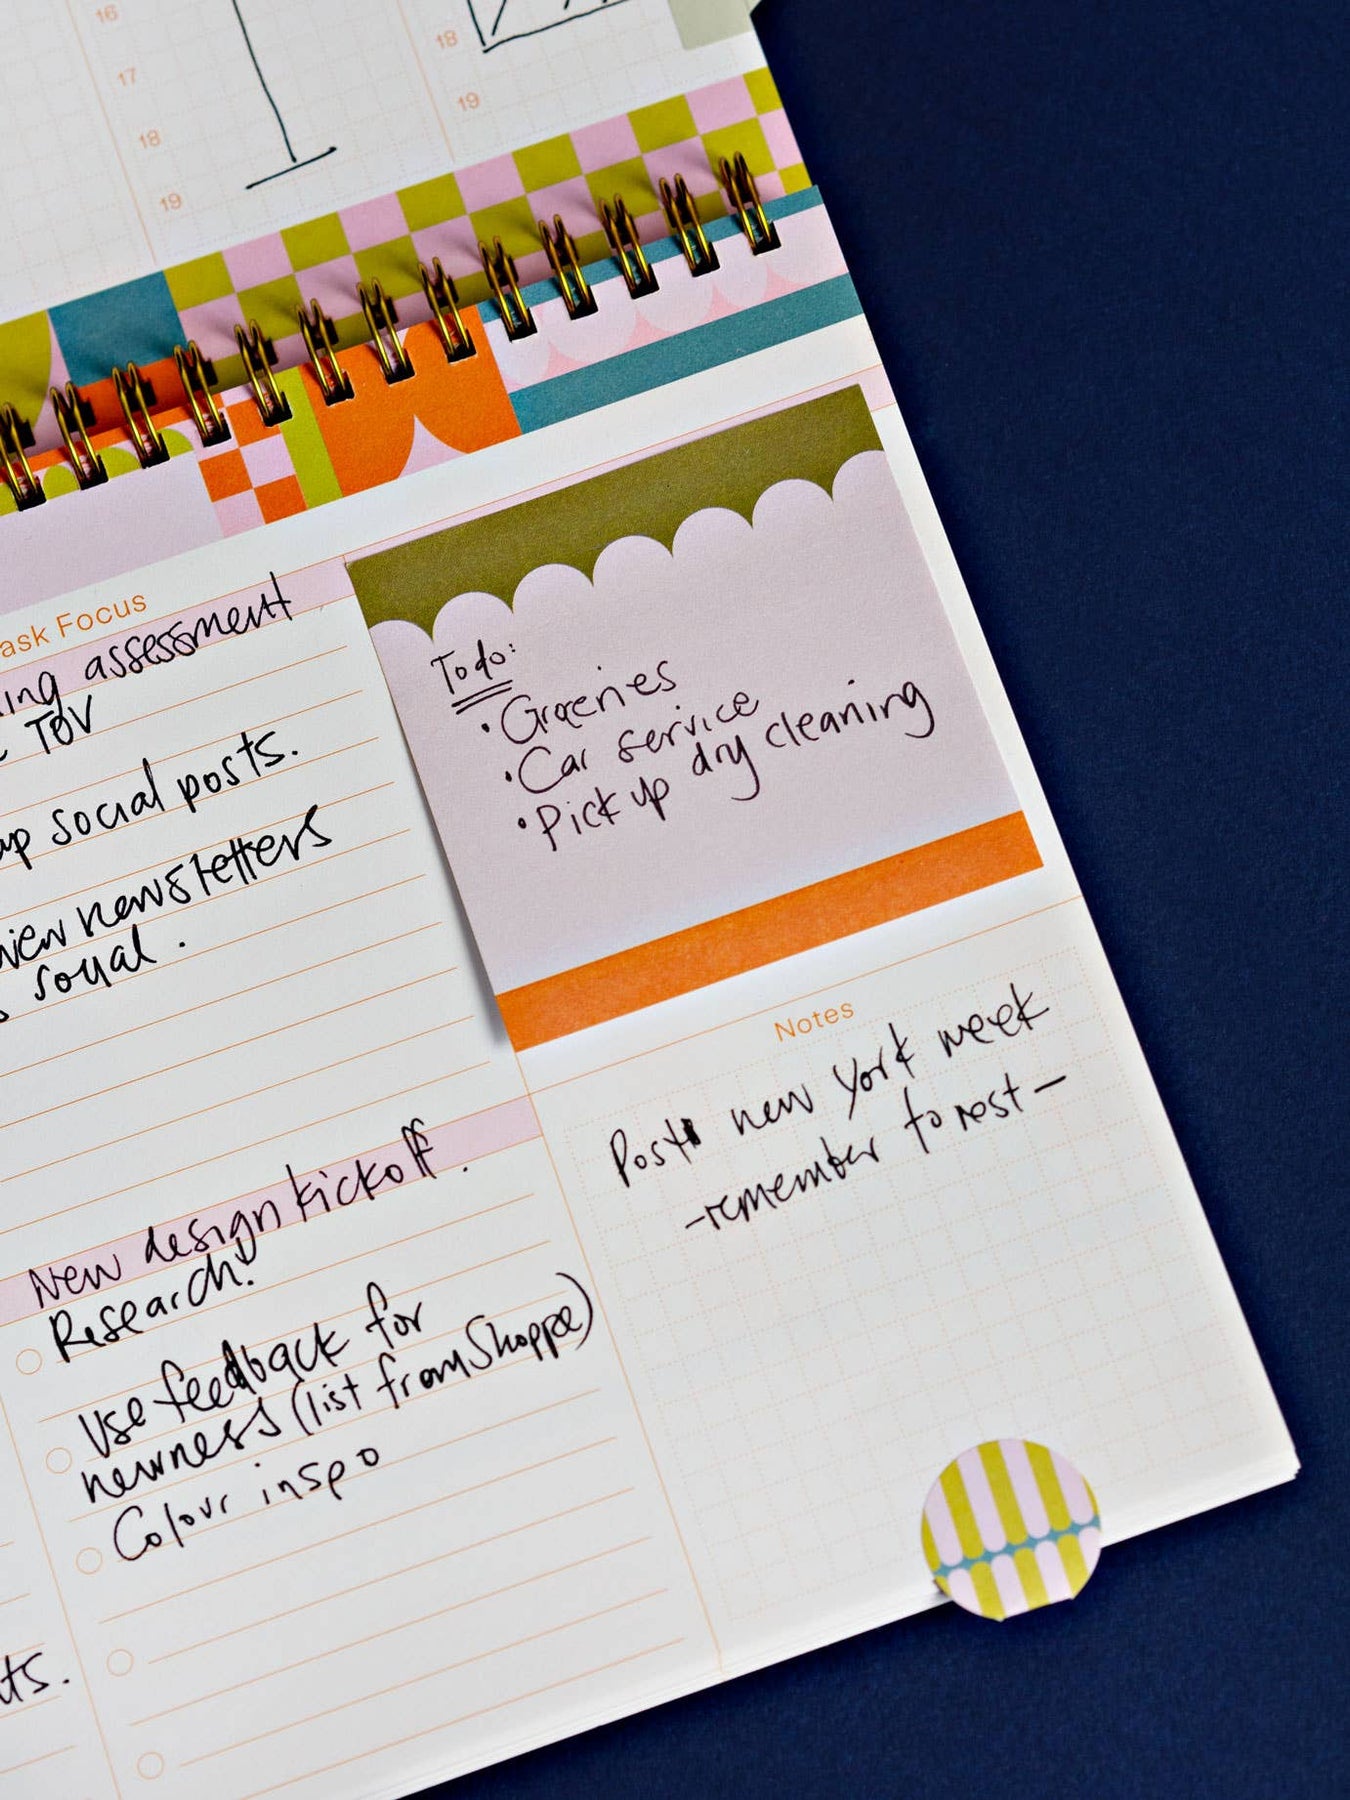 16
17
18
19
18
19
ask Focus
ing assessment
TOV
up social posts.
view newsletters
s social.
New design kickoff.
Research.
Use feedback for
newness (list from Shoppe)
Colour inspo
ts.
Todo:
• Groceries
• Car service
• Pick up dry cleaning
Notes
Post new york week
- remember to rest -